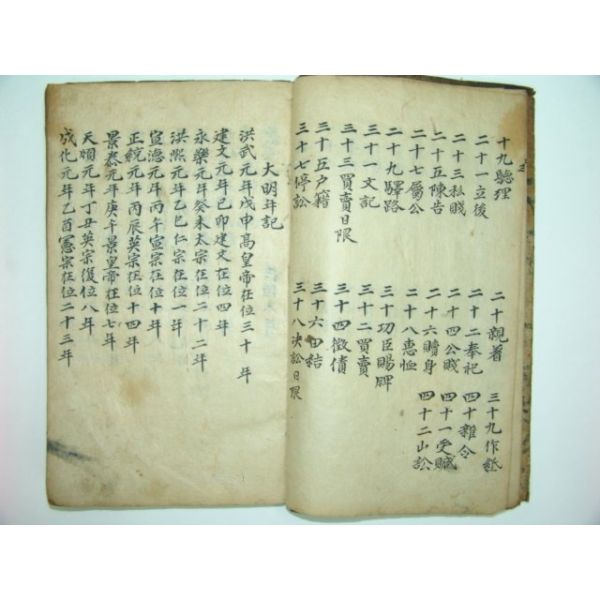 十九聽理 二十親着 三十九作紙
二十一立後 二十二奉祀 四十雜令
二十三私賤 二十四公賤 四十一受贓
二十五陳告 二十六贖身 四十二山訟
二十七屬公 二十八惠恤
二十九驛路 三十功臣賜牌
三十一文記 三十二買賣
三十三買賣日限 三十四徵債
三十五戶籍 三十六田結
三十七停訟 三十八决訟日限
大明年記
洪武元年戊申高皇帝在位三十年
建文元年己卯建文在位四年
永樂元年癸未太宗在位二十二年
洪熙元年乙巳仁宗在位一年
宣德元年丙午宣宗在位十年
正統元年丙辰英宗在位十四年
景泰元年庚午景皇帝在位七年
天順元年丁丑英宗復位八年
成化元年乙酉憲宗在位二十三年